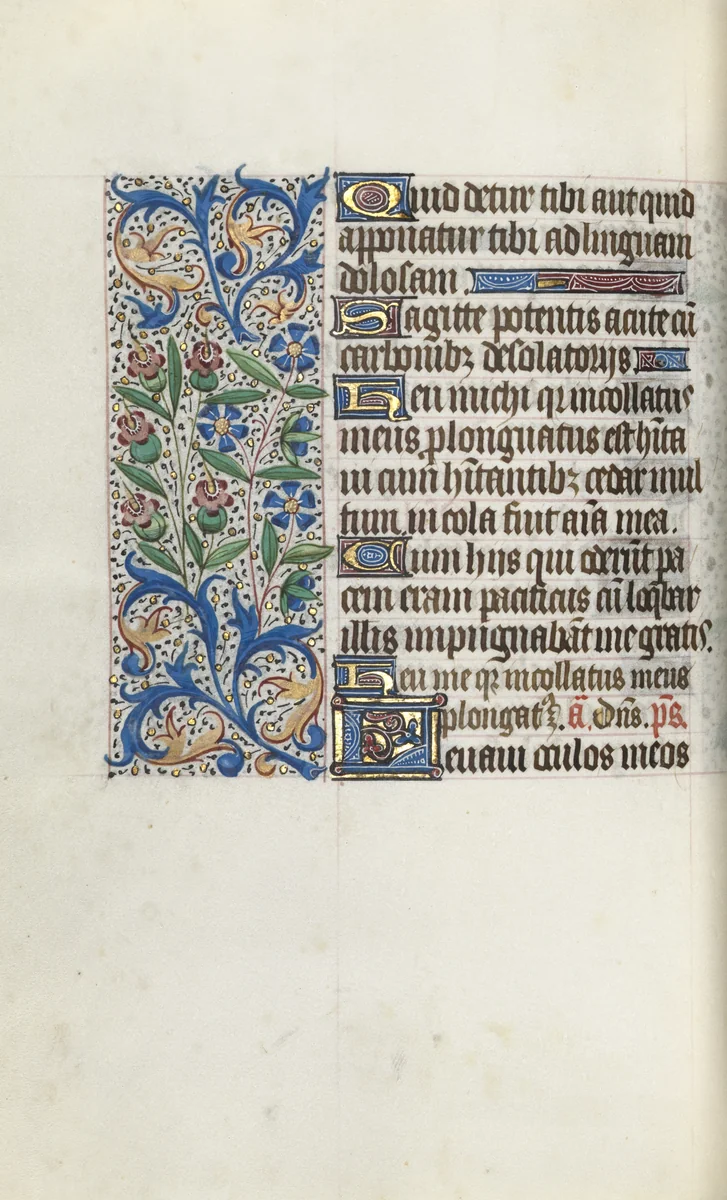 Quid detur tibi aut quid
apponatur tibi ad linguam
dolosam.
Sagitte potentis acute cū
carbonibꝫ desolatorijs
Heu michi qꝛ incollatus
meus ꝓlonguatus est hīta
ui cum hītantibꝫ cedar mul
tum incola fuit aīa mea.
Cum hiis qui oderūt pa
cem eram pacificus cū loq̄bar
illis impugnabāt me gratis.
Heu me qꝛ incollatus meus
plongatꝰ ē. ā. Dn̄s. p̄s.
Leuaui oculos meos